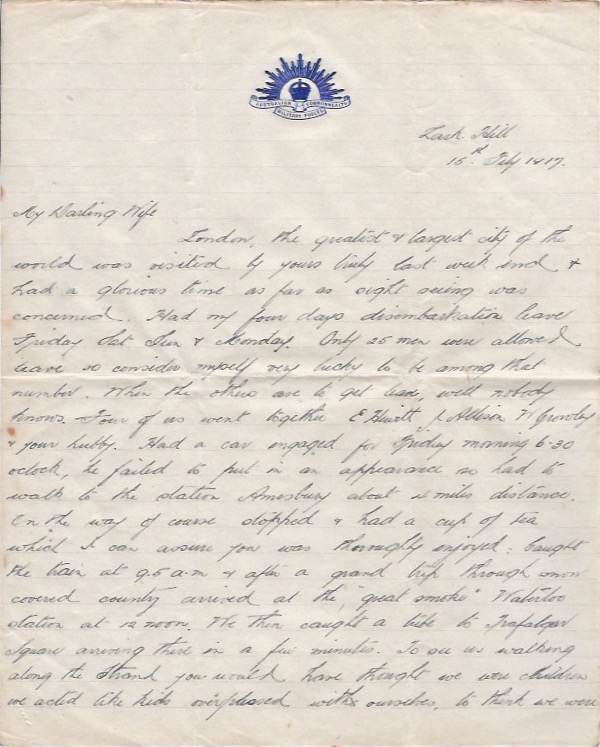 AUSTRALIAN COMMONWEALTH
MILITARY FORCES
Lark Hill
15th Feby 1917.
My Darling Wife
London, the greatest & largest city of the
world was visited by yours truly last week end &
had a glorious time as far as sight seeing was
concerned. Had my four days disembarkation leave
Friday Sat Sun & Monday. Only 25 men were allowed
leave so consider myself very lucky to be among that
number. When the others are to get leave, well nobody
knows. Four of us went together E Hewitt J Allison W Crowley
& your hubby. Had a car engaged for Friday morning 6-30
oclock, he failed to put in an appearance so had to
walk to the station Amesbury about 4 miles distance.
On the way of course stopped & had a cup of tea
which I can assure you was thoroughly enjoyed. Caught
the train at 9.5 a.m & after a grand trip through snow
covered country arrived at the "great smoke" Waterloo
station at 12 noon. We then caught a tube to Trafalgar
Square arriving there in a few minutes. To see us walking
along the Strand you would have thought we were children
we acted like kids overpleased with ourselves, to think we were